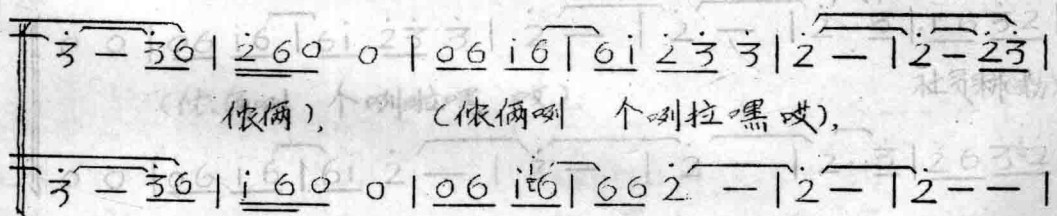 3̇ — 3̇6 | 2̇60 0 | 06 i6 | 6i 2̇3̇ 3̇ | 2̇ — | 2̇ — 2̇3̇ |
侬俩), (侬俩咧 个咧拉嘿哎),
3̇ — 3̇6 | i60 0 | 06 i6 | 66 2̇ — | 2̇ — | 2̇ — — |